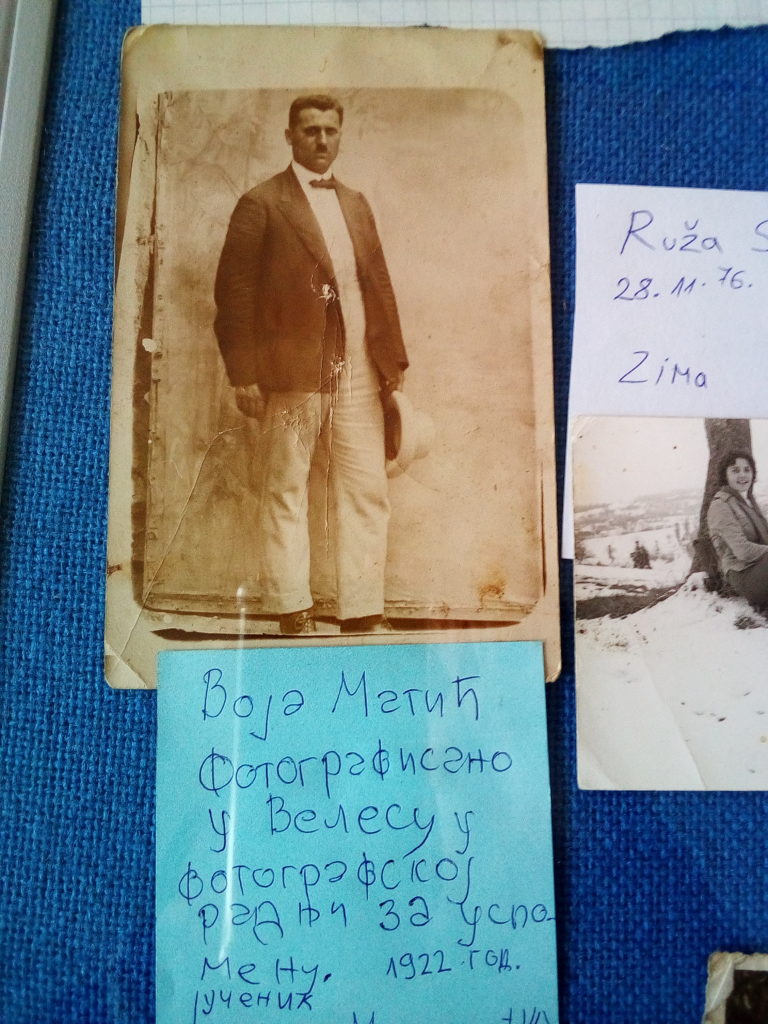 Воја Матић
Фотографисано
у Велесу у
фотографској
радњи за успо-
мену. 1922 год.
Ruža S
28.11.76.
Zima